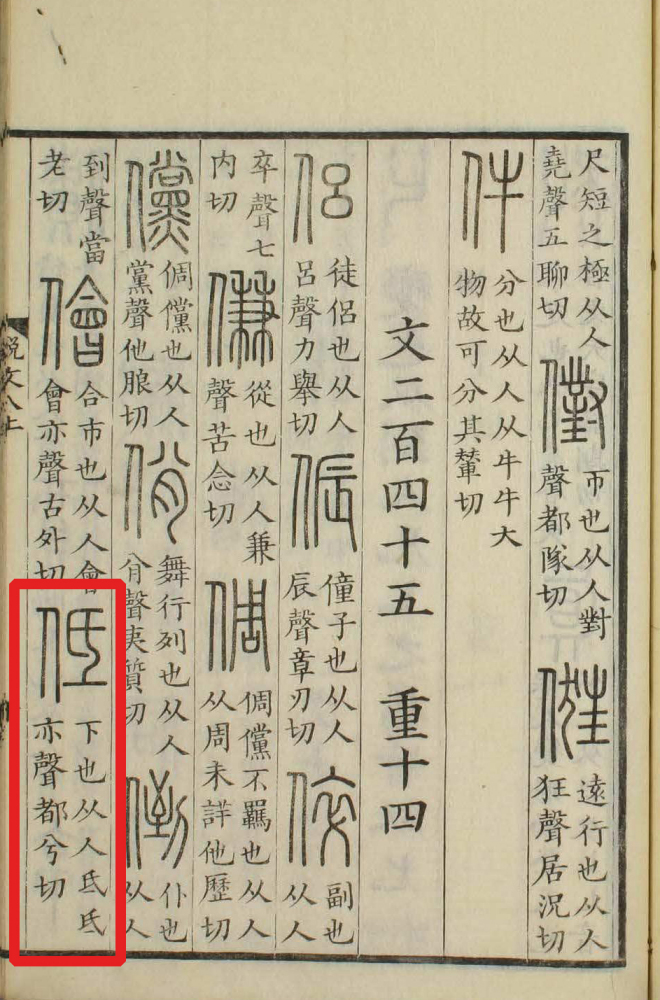 尺短之極从人
堯聲五聊切
㒑
帀也从人對
聲都隊切
㑌
遠行也从人
狂聲居況切
件
分也从人从牛牛大
物故可分其輦切
文二百四十五 重十四
侶
徒侶也从人
呂聲力舉切
侲
僮子也从人
辰聲章刃切
倅
副也
从人
卒聲七
内切
傔
從也从人兼
聲苦念切
倜
倜儻不羈也从人
从周未詳他歷切
儻
倜儻也从人
黨聲他朖切
佾
舞行列也从人
䏌聲夷質切
倒
仆也
从人
到聲當
老切
儈
合市也从人會
會亦聲古外切
低
下也从人氐氐
亦聲都兮切
說文八上